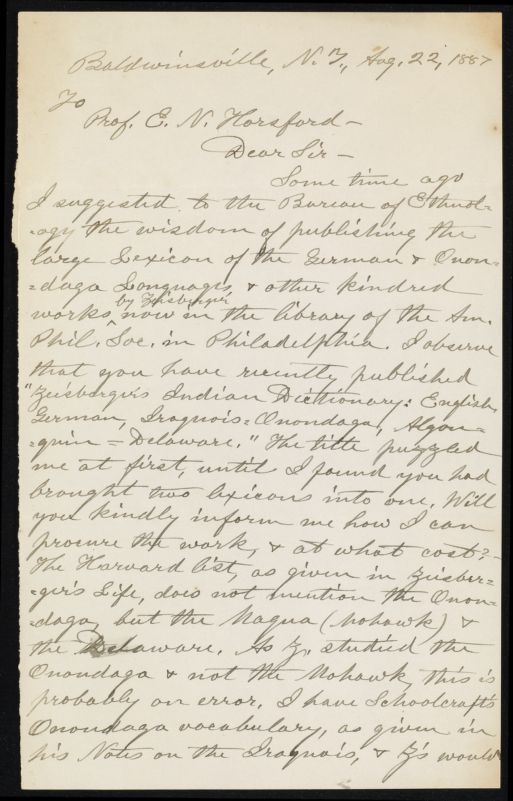 Baldwinsville, N. Y., Aug. 22, 1887
To
Prof. E. N. Horsford –
Dear Sir –
Some time ago
I suggested to the Bureau of Ethnol=
=ogy the wisdom of publishing the
large Lexicon of the German & Onon=
=daga Languages, & other kindred
by Zeisberger
works now in the library of the Am.
Phil. Soc. in Philadelphia. I observe
that you have recently published
"Zeisberger's Indian Dictionary: English,
German, Iroquois=Onondaga, Algon=
=quin = Delaware." The title puzzled
me at first, until I found you had
brought two lexicons into one. Will
you kindly inform me how I can
procure the work, & at what cost? –
The Harvard list, as given in Zeisber=
=ger's Life, does not mention the Onon=
=daga, but the Maqua (Mohawk) &
the Delaware. As Z. studied the
Onondaga & not the Mohawk, this is
probably an error. I have Schoolcraft's
Onondaga vocabulary, as given in
his Notes on the Iroquois, & Z's would